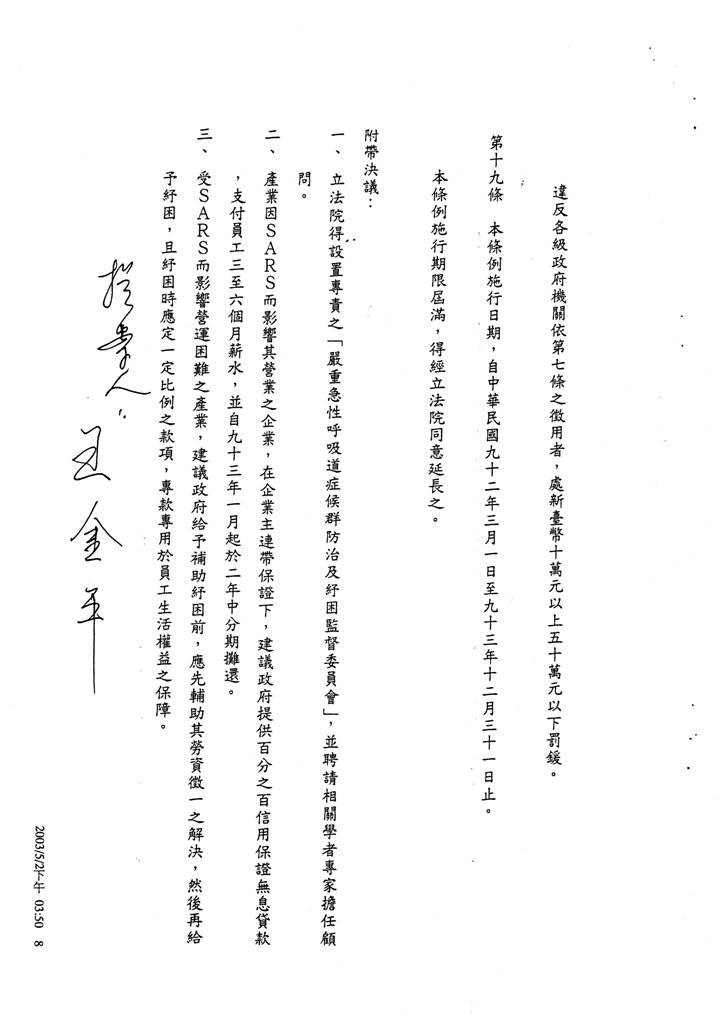 違反各級政府機關依第七條之徵用者，處新臺幣十萬元以上五十萬元以下罰鍰。
第十九條　本條例施行日期，自中華民國九十二年三月一日至九十三年十二月三十一日止。
本條例施行期限屆滿，得經立法院同意延長之。
附帶決議：
一、立法院得設置專責之「嚴重急性呼吸道症候群防治及紓困監督委員會」，並聘請相關學者專家擔任顧
問。
二、產業因SARS而影響其營業之企業，在企業主連帶保證下，建議政府提供百分之百信用保證無息貸款
，支付員工三至六個月薪水，並自九十三年一月起於二年中分期攤還。
三、受SARS而影響營運困難之產業，建議政府給予補助紓困前，應先輔助其勞資徵一之解決，然後再給
予紓困，且紓困時應定一定比例之款項，專款專用於員工生活權益之保障。
提案人：王金平
2003/5/2下午 03:50 8